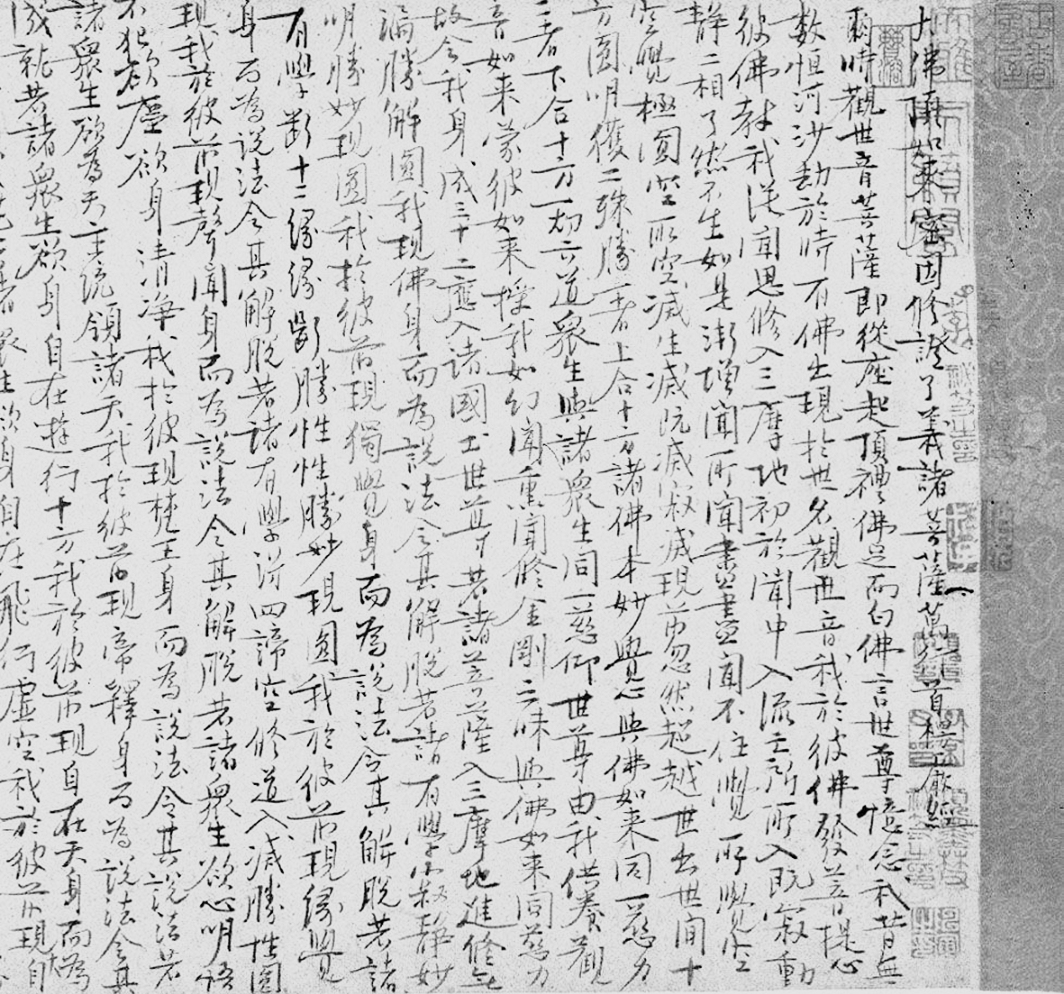 大佛頂如來密因修證了義諸菩薩萬行首楞嚴經
爾時觀世音菩薩即從座起頂禮佛足而白佛言世尊憶念我昔無
數恒河沙劫於時有佛出現於世名觀世音我於彼佛發菩提心
彼佛教我從聞思修入三摩地初於聞中入流亡所所入既寂動
靜二相了然不生如是漸增聞所聞盡盡聞不住覺所覺空
空覺極圓空所空滅生滅既滅寂滅現前忽然超越世出世間十
方圓明獲二殊勝一者上合十方諸佛本妙覺心與佛如來同一慈力
二者下合十方一切六道眾生與諸眾生同一慈仰世尊由我供養觀
音如來蒙彼如來授我如幻聞熏聞修金剛三昧與佛如來同慈力
故令我身成三十二應入諸國土世尊若諸菩薩入三摩地進修無
漏勝解圓我現佛身而為說法令其解脫若諸有學寂靜妙
明勝妙現圓我於彼前現獨覺身而為說法令其解脫若諸
有學斷十二緣緣斷勝性性勝妙現圓我於彼前現緣覺
身而為說法令其解脫若諸有學得四諦空修道入滅勝性圓
現我於彼前現聲聞身而為說法令其解脫若諸眾生欲心明悟
不犯欲塵欲身清淨我於彼現梵王身而為說法令其說法若
諸眾生欲為天主統領諸天我於彼前現帝釋身而為說法令其
成就若諸眾生欲身自在遊行十方我於彼前現自在天身而為
眾生欲身自在飛行虛空我於彼前現自